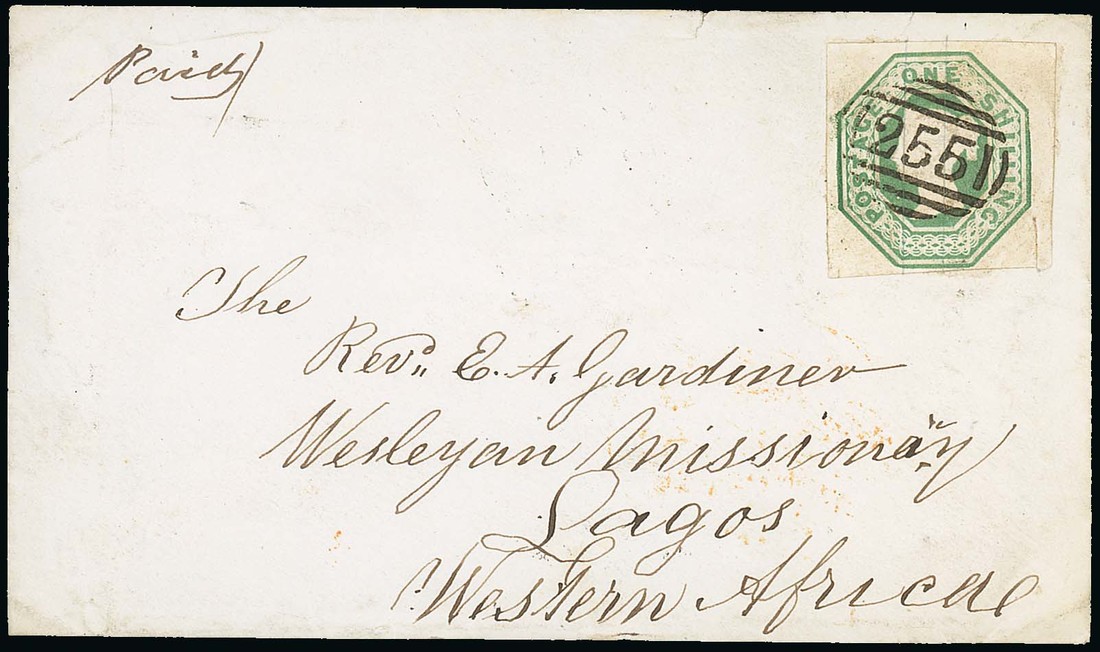 Paid
POSTAGE ONE SHILLING
2551
The
Revd. E. A. Gardiner
Wesleyan Missionary
Lagos
Western Africa